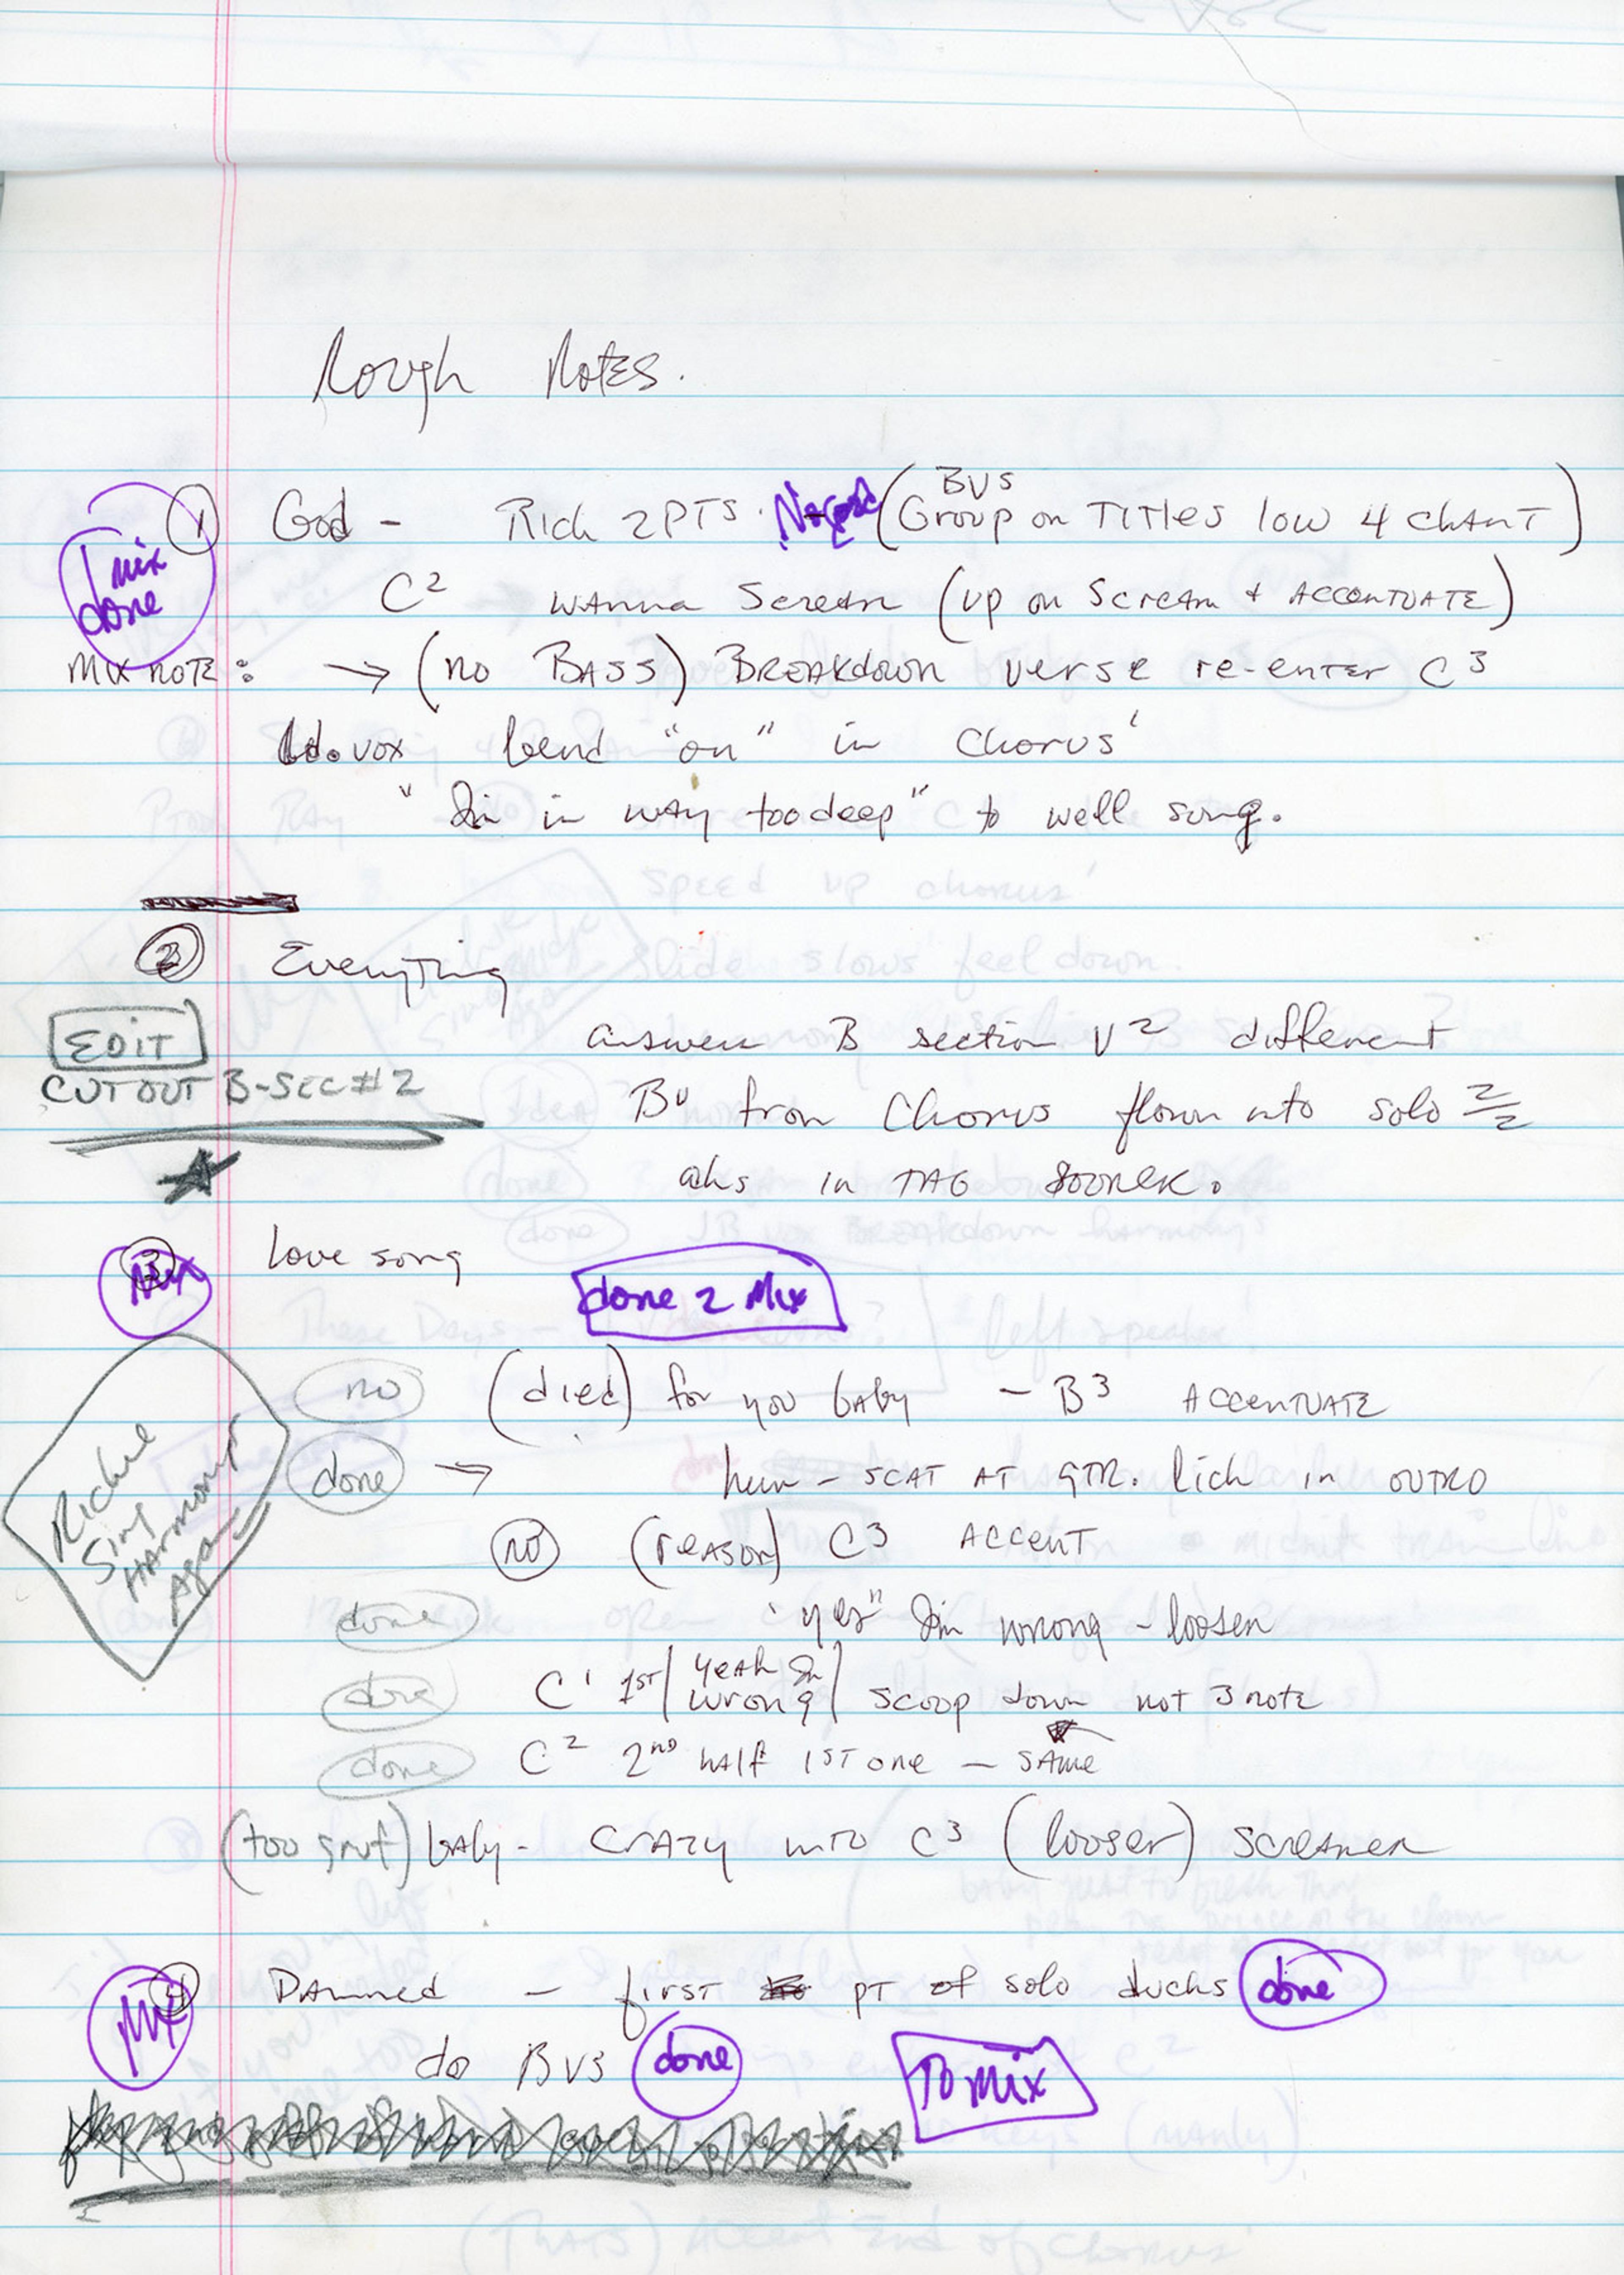 Rough Notes.
BVS
① God - Rich 2 PTS. (Group on TITLES low 4 CHANT)
mix done
C² WANNA Scream (up on Scream + ACCENTUATE)
MIX NOTE: → (no BASS) BREAKDOWN verse re-enter C³
Ld. vox bend "on" in Chorus'
" I'm in WAY too deep" to well sung.
② Everything
EDIT
answer B section V² different
CUT OUT B-SEC #2
BV from Chorus flown into solo 2/2
ahs in TAG SOONER.
③ Love song
Mix
done 2 Mix
no (died) for you baby - B³ ACCENTUATE
done → hum - SCAT AT GTR. lick in OUTRO
Richie Sing HARMONY Again
no (reason) C³ ACCENT
done "yes" I'm wrong - loosen
done C¹ 1ST / yeah I'm wrong / scoop down not 3 note
done C² 2ND half 1ST one - SAME
(too gruf) baby - CRAZY INTO C³ (looser) screamer
④ DAMNED - first PT of solo ducks done
Mix
do BVS done To Mix